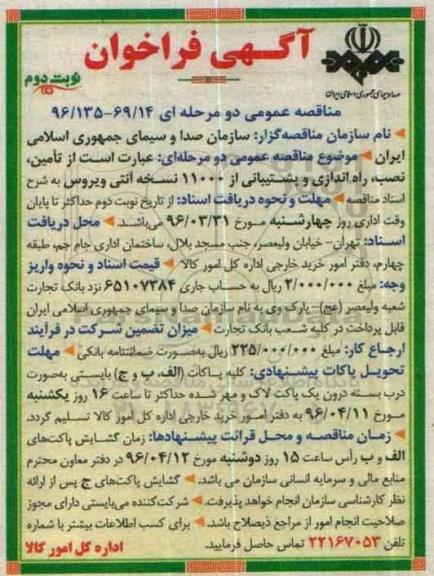 آگهی فراخوان
نوبت دوم
صدا و سیمای جمهوری اسلامی ایران
مناقصه عمومی دو مرحله ای ۶۹/۱۴-۹۶/۱۳۵
نام سازمان مناقصه‌گزار: سازمان صدا و سیمای جمهوری اسلامی
ایران موضوع مناقصه عمومی دو مرحله‌ای: عبارت است از تأمین،
نصب، راه اندازی و پشتیبانی از ۱۱۰۰۰ نسخه آنتی ویروس به شرح
اسناد مناقصه مهلت و نحوه دریافت اسناد: از تاریخ نوبت دوم حداکثر تا پایان
وقت اداری روز چهارشنبه مورخ ۹۶/۰۳/۳۱ می‌باشد. محل دریافت
اسناد: تهران- خیابان ولیعصر، جنب مسجد بلال، ساختمان اداری جام جم، طبقه
چهارم، دفتر امور خرید خارجی اداره کل امور کالا قیمت اسناد و نحوه واریز
وجه: مبلغ ۲/۰۰۰/۰۰۰ ریال به حساب جاری ۶۵۱۰۷۳۸۴ نزد بانک تجارت
شعبه ولیعصر (عج) - پارک وی به نام سازمان صدا و سیمای جمهوری اسلامی ایران
قابل پرداخت در کلیه شعب بانک تجارت میزان تضمین شرکت در فرآیند
ارجاع کار: مبلغ ۲۲۵/۰۰۰/۰۰۰ ریال به‌صورت ضمانتنامه بانکی مهلت
تحویل پاکات پیشنهادی: کلیه پاکات (الف، ب و ج) بایستی به‌صورت
درب بسته درون یک پاکت لاک و مهر شده حداکثر تا ساعت ۱۶ روز یکشنبه
مورخ ۹۶/۰۴/۱۱ به دفتر امور خرید خارجی اداره کل امور کالا تسلیم گردد.
زمان مناقصه و محل قرائت پیشنهادها: زمان گشایش پاکت‌های
الف و ب رأس ساعت ۱۵ روز دوشنبه مورخ ۹۶/۰۴/۱۲ در دفتر معاون محترم
منابع مالی و سرمایه انسانی سازمان می باشد. گشایش پاکت‌های ج پس از ارائه
نظر کارشناسی سازمان انجام خواهد پذیرفت. شرکت‌کننده می‌بایستی دارای مجوز
صلاحیت انجام امور از مراجع ذیصلاح باشد. برای کسب اطلاعات بیشتر با شماره
تلفن ۲۲۱۶۷۰۵۳ تماس حاصل فرمایید.
اداره کل امور کالا